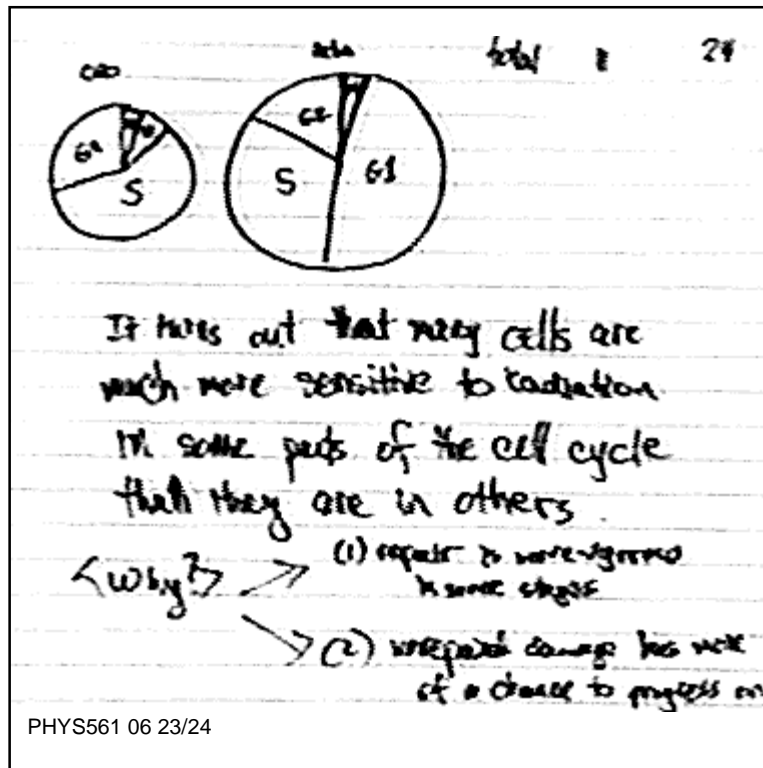 total = 24
G2 M G1
S S
It turns out that many cells are
much more sensitive to radiation
in some parts of the cell cycle
than they are in others.
<Why?> (1) repair is more vigorous
in some stages
(2) unrepaired damage has more
of a chance to progress
PHYS561 06 23/24